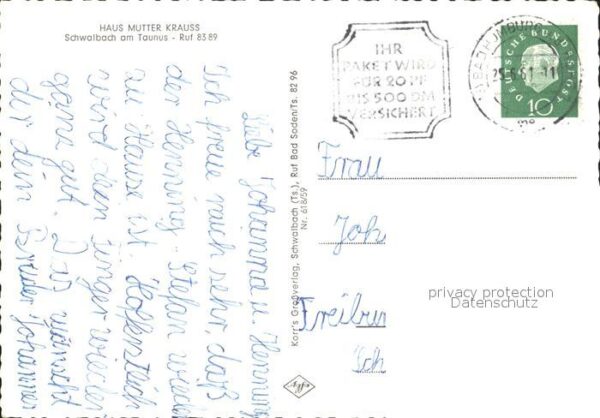 HAUS MUTTER KRAUSS
Schwalbach am Taunus - Ruf 83 89
Liebe Johanna u. Henning
Ich freue mich sehr, daß
der Henning-Stefan wied
zu Hause ist. Hoffentlich
wird dein Finger wieder
ganz gut. Das wünscht
dir dein Bruder Johannes
Karr's Großverlag, Schwalbach (Ts.), Ruf Bad Soden/Ts. 82 96
Nr. 618/59
IHR
PAKET WIRD
FÜR 20 PF
BIS 500 DM
VERSICHERT
BAD HOMBURG
DEUTSCHE BUNDESPOST
10
Frau
Joh
Freibur
Sch
privacy protection
Datenschutz